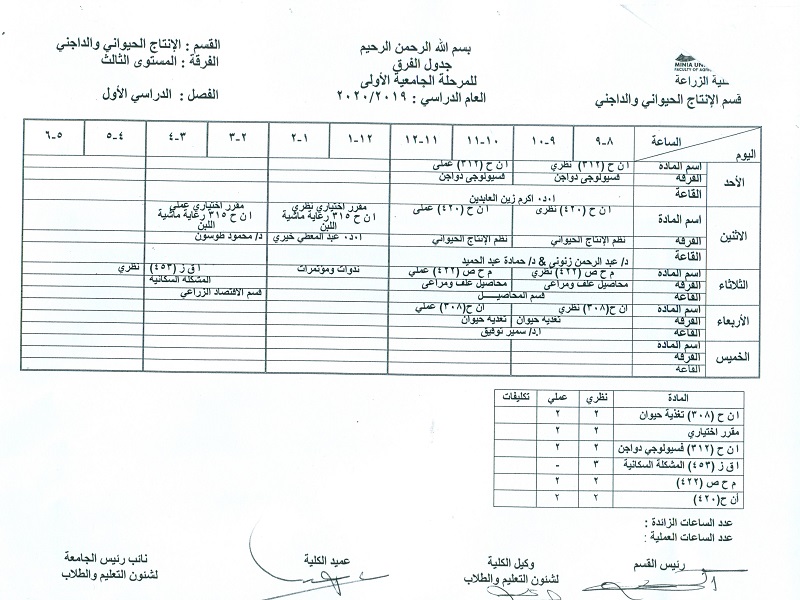 بسم الله الرحمن الرحيم
جدول الفرق
للمرحلة الجامعية الأولى
العام الدراسي : ٢٠٢٠/٢٠١٩
القسم : الإنتاج الحيواني والداجني
الفرقة : المستوى الثالث
الفصل : الدراسي الأول
MINIA UN
FACULTY OF AGR
ية الزراعة
قسم الإنتاج الحيواني والداجني
اليوم الساعة ٨-٩ ٩-١٠ ١٠-١١ ١١-١٢ ١٢-١ ١-٢ ٢-٣ ٣-٤ ٤-٥ ٥-٦
الأحد اسم المادة ان ح (٣١٢) نظري ان ح (٣١٢) عملى
الفرقة فسيولوجى دواجن فسيولوجى دواجن
القاعة ا٠د٠ اكرم زين العابدين
الاثنين اسم المادة ان ح (٤٢٠) نظرى ان ح (٤٢٠) عملى مقرر اختياري نظري مقرر اختياري عملي
ان ح ٣١٥ رعاية ماشية ان ح ٣١٥ رعاية ماشية
اللبن اللبن
الفرقة نظم الإنتاج الحيواني نظم الإنتاج الحيواني ا٠د٠ عبد المعطي خيري د/ محمود طوسون
القاعة د/ عبد الرحمن زنوني & د/ حمادة عبد الحميد
الثلاثاء اسم المادة م ح ص (٤٢٢) نظري م ح ص (٤٢٢) عملي ندوات ومؤتمرات اق ز (٤٥٣) نظري
الفرقة محاصيل علف ومراعى محاصيل علف ومراعى المشكلة السكانية
القاعة قسم المحاصيل قسم الاقتصاد الزراعي
الأربعاء اسم المادة ان ح (٣٠٨) نظري ان ح(٣٠٨) عملي
الفرقة تغدية حيوان تغدية حيوان
القاعة ا.د/ سمير توفيق
الخميس اسم المادة
الفرقة
القاعة
المادة نظري عملي تكليفات
ان ح (٣٠٨) تغذية حيوان ٢ ٢
مقرر اختياري ٢ ٢
ان ح (٣١٢) فسيولوجي دواجن ٢ ٢
اق ز (٤٥٣) المشكلة السكانية ٣ -
م ح ص (٤٢٢) ٢ ٢
أن ح(٤٢٠) ٢ ٢
عدد الساعات الزائدة :
عدد الساعات العملية :
رئيس القسم
وكيل الكلية
لشئون التعليم والطلاب
عميد الكلية
نائب رئيس الجامعة
لشئون التعليم والطلاب